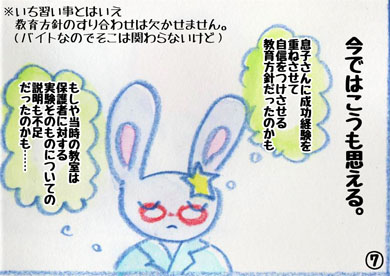 ※いち習い事とはいえ
教育方針のすり合わせは欠かせません。
(バイトなのでそこは関わらないけど)
今ではこうも思える。
息子さんに成功経験を
重ねさせて
自信をつけさせる
教育方針だったのかも
もしや当時の教室は
保護者に対する
実験そのものについての
説明も不足
だったのかも……
⑦